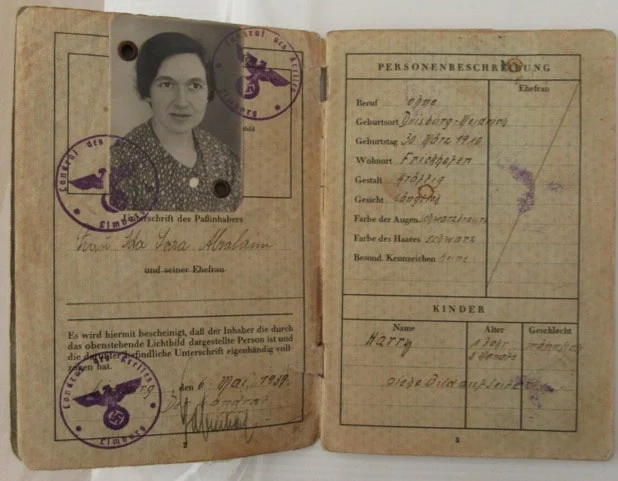 Landrat des Kreises
Limburg
Landrat des Kreises
Limburg
Unterschrift des Paßinhabers
Ida Sara Abraham
und seiner Ehefrau
Es wird hiermit bescheinigt, daß der Inhaber die durch
das obenstehende Lichtbild dargestellte Person ist und
die darunter befindliche Unterschrift eigenhändig voll-
zogen hat.
den 6. Mai 1939.
Der Landrat
Limburg
2
PERSONENBESCHREIBUNG
Ehefrau
Beruf ohne
Geburtsort Duisburg-Meiderich
Geburtstag 30. März 1910
Wohnort Frickhofen
Gestalt kräftig
Gesicht länglich
Farbe der Augen schwarzbraun
Farbe des Haares schwarz
Besond. Kennzeichen keine
KINDER
Name Alter Geschlecht
Harry 1 Jahr männlich
Siehe Bild auf Seite
3